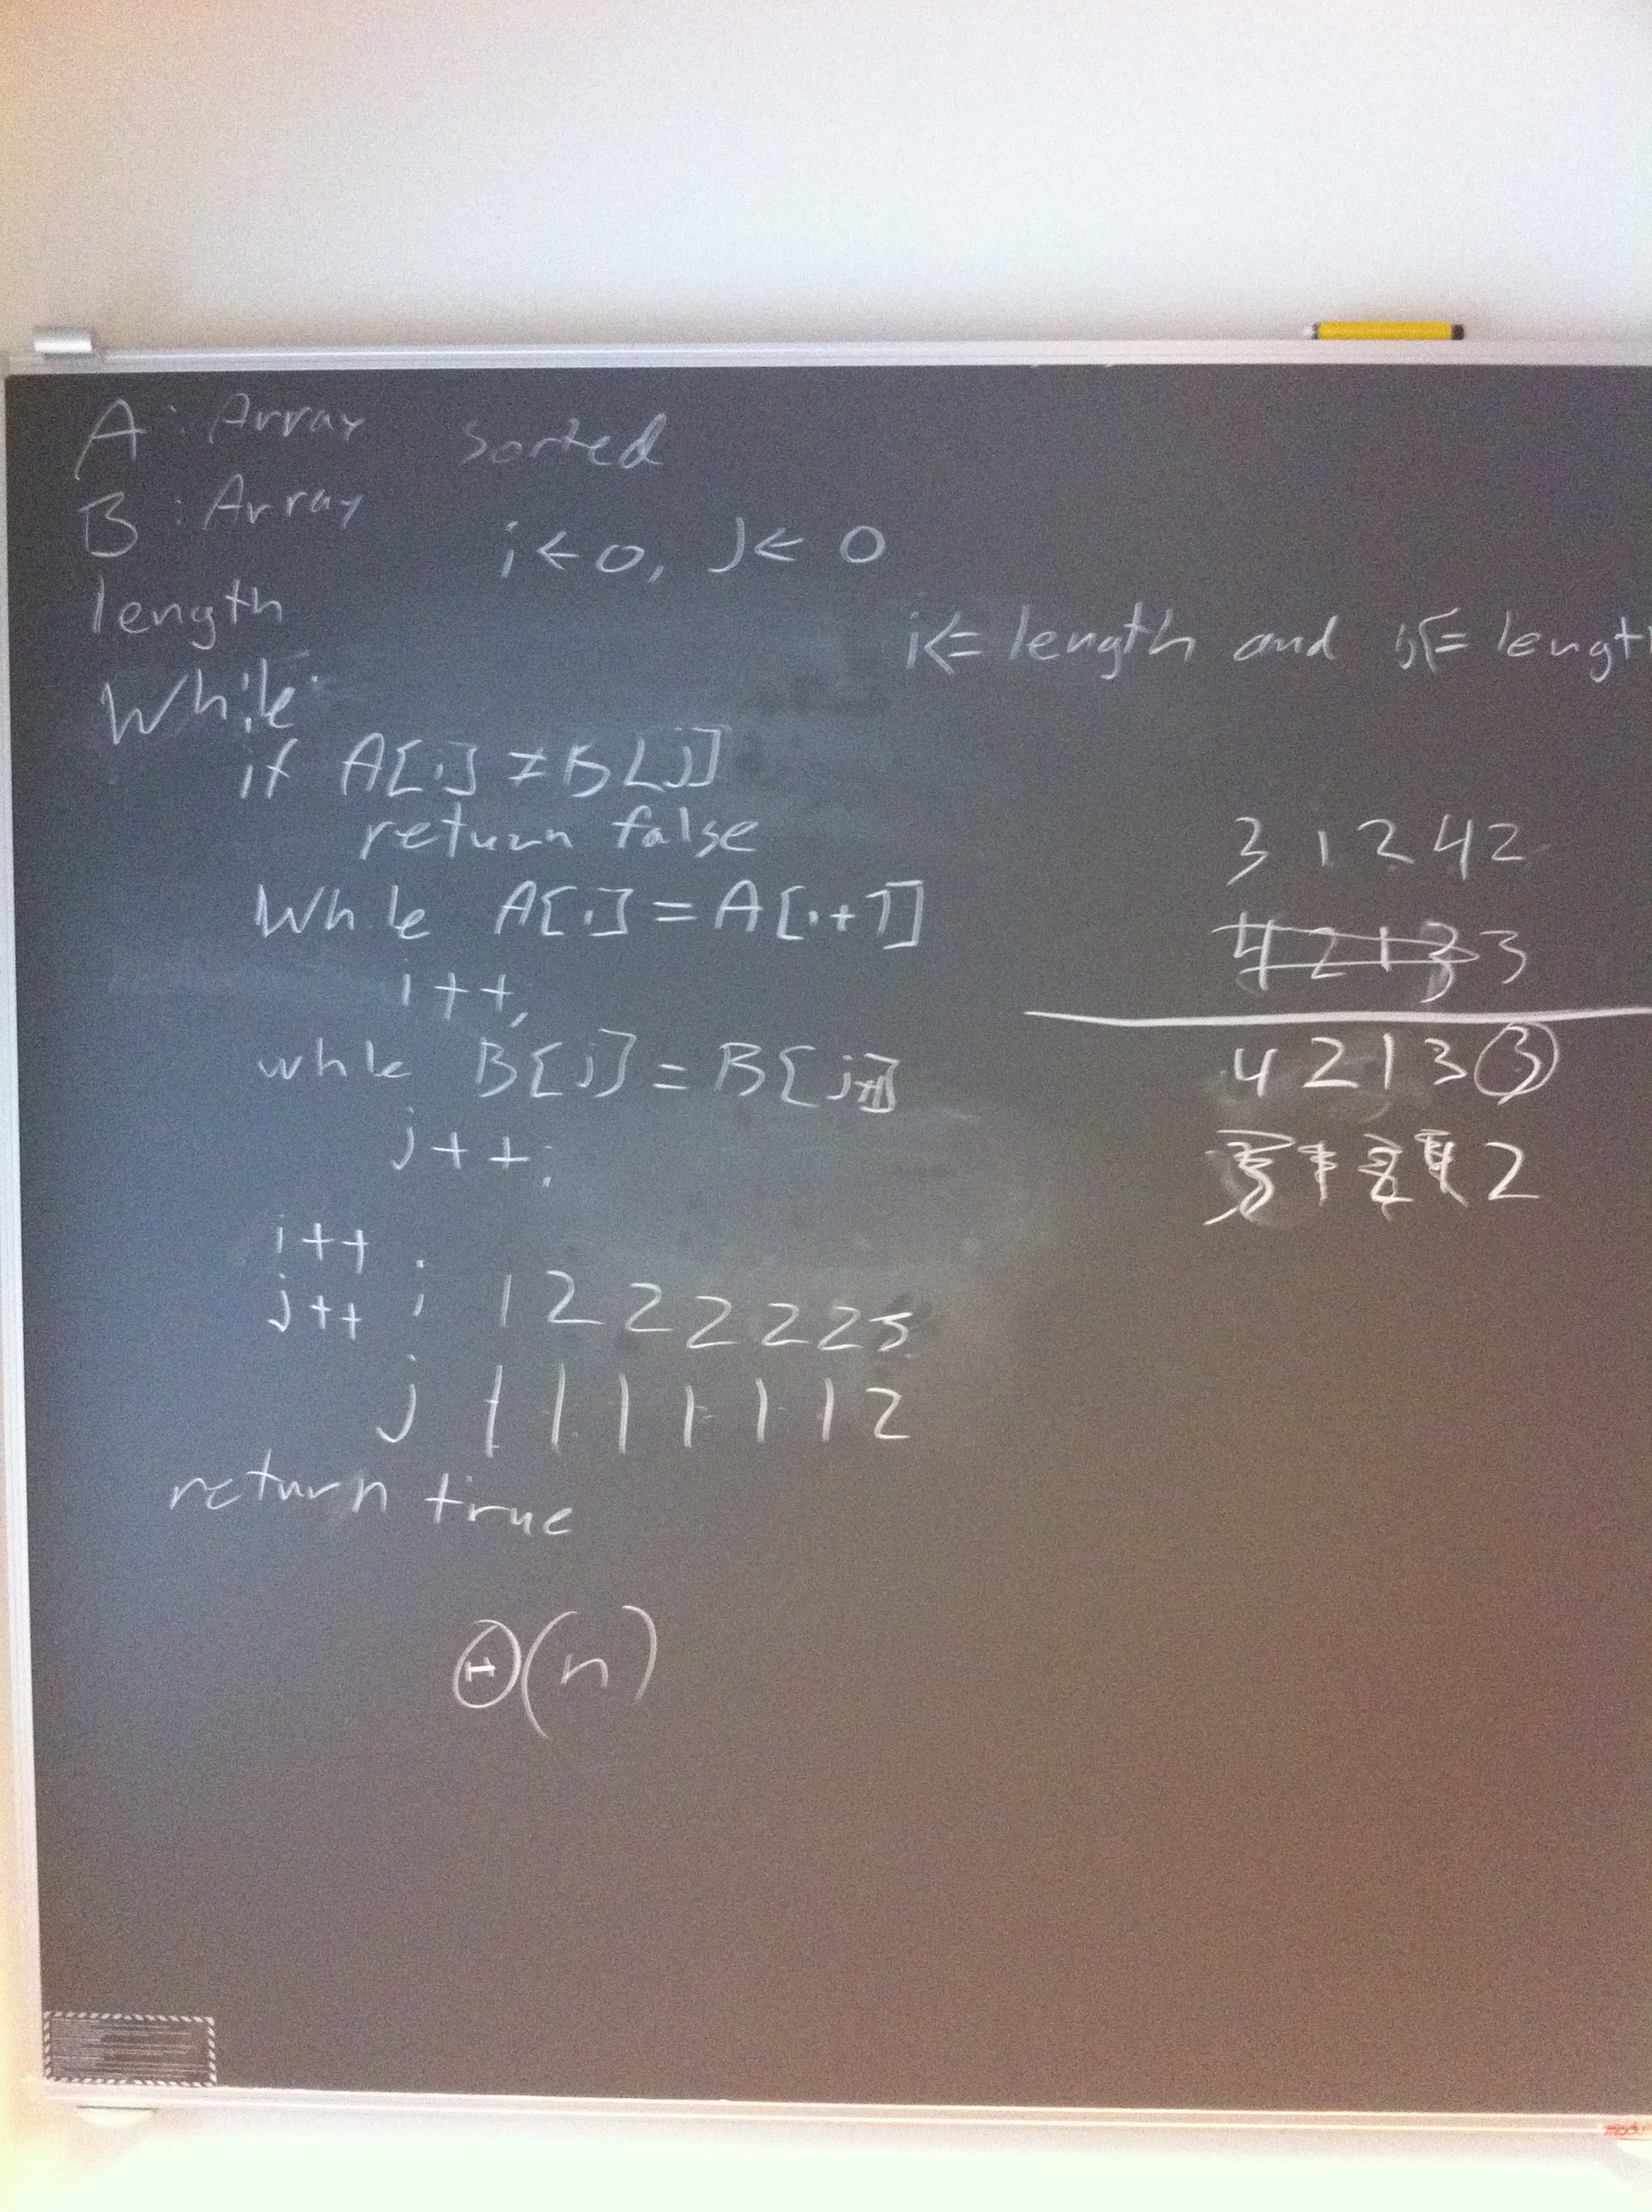 A : Array sorted
B : Array
i ← 0, J ← 0
length
i <= length and j <= length
While
if A[i] ≠ B[j]
return false
While A[i] = A[i+1]
i++;
while B[j] = B[j+1]
j++;
i++
j++
i 1 2 2 2 2 2 5
j 1 1 1 1 1 1 2
return true
Θ(n)
3 1 2 4 2
4 2 1 3 3
4 2 1 3 3
3 1 2 4 2